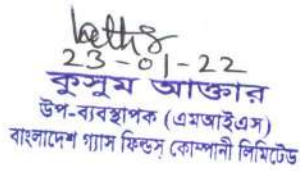 23-01-22
কুসুম আক্তার
উপ-ব্যবস্থাপক (এমআইএস)
বাংলাদেশ গ্যাস ফিল্ডস্ কোম্পানী লিমিটেড